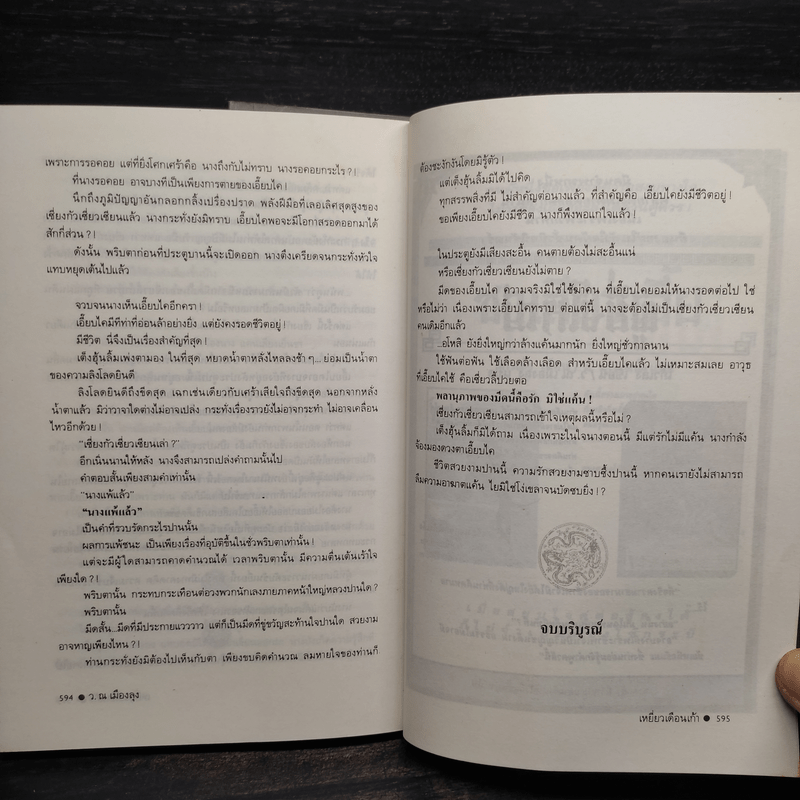 เพราะการรอคอย แต่ที่ยิ่งโศกเศร้าคือ นางถึงกับไม่ทราบ นางรอคอยกระไร?!
ที่นางรอคอย อาจบางทีเป็นเพียงการตายของเอี้ยบไค!
นึกถึงภูมิปัญญาอันกลอกกลิ้งเปรื่องปราด พลังฝีมือที่เลอเลิศสุดสูงของ
เซี่ยงกัวเซี่ยวเซียนแล้ว นางกระทั่งยังมิทราบ เอี้ยบไคพอจะมีโอกาสรอดออกมาได้
สักกี่ส่วน?!
ดังนั้น พริบตาก่อนที่ประตูบานนี้จะเปิดออก นางตึงเครียดจนกระทั่งหัวใจ
แทบหยุดเต้นไปแล้ว
จวบจนนางเห็นเอี้ยบไคอีกครา!
เอี้ยบไคมีทีท่าที่อ่อนล้าอย่างยิ่ง แต่ยังคงรอดชีวิตอยู่!
มีชีวิต นี่จึงเป็นเรื่องสำคัญที่สุด!
เต็งฮุ้นลิ้มเพ่งตามอง ในที่สุด หยาดน้ำตาหลั่งไหลลงช้าๆ...ย่อมเป็นน้ำตา
ของความลิงโลดยินดี
ลิงโลดยินดีถึงขีดสุด เฉกเช่นเดียวกับเศร้าเสียใจถึงขีดสุด นอกจากหลั่ง
น้ำตาแล้ว มิว่าวาจาใดต่างไม่อาจเปล่ง กระทั่งเรื่องราวยังไม่อาจกระทำ ไม่อาจเคลื่อน
ไหวอีกด้วย!
“เซี่ยงกัวเซี่ยวเซียนเล่า?”
อีกเนิ่นนานให้หลัง นางจึงสามารถเปล่งคำถามนั้นไป
คำตอบสั้นเพียงสามคำเท่านั้น
“นางแพ้แล้ว”
“นางแพ้แล้ว”
เป็นคำที่รวบรัดกระไรปานนั้น
ผลการแพ้ชนะ เป็นเพียงเรื่องที่อุบัติขึ้นในชั่วพริบตาเท่านั้น!
แต่จะมีผู้ใดสามารถคาดคำนวณได้ เวลาพริบตานั้น มีความตื่นเต้นเร้าใจ
เพียงใด?!
พริบตานั้น กระทบกระเทือนต่อวงพวกนักเลงภายภาคหน้าใหญ่หลวงปานใด?
พริบตานั้น
มีดสั้น...มีดที่มีประกายแวววาว แต่ก็เป็นมีดที่ขู่ขวัญสะท้านใจปานใด สวยงาม
อาจหาญเพียงไหน?!
ท่านกระทั่งยังมิต้องไปเห็นกับตา เพียงขบคิดคำนวณ ลมหายใจของท่านก็
594 ● ว. ณ เมืองลุง
ต้องชะงักงันโดยมิรู้ตัว!
แต่เต็งฮุ้นลิ้มมิได้ไปคิด
ทุกสรรพสิ่งที่มี ไม่สำคัญต่อนางแล้ว ที่สำคัญคือ เอี้ยบไคยังมีชีวิตอยู่!
ขอเพียงเอี้ยบไคยังมีชีวิต นางก็พึงพอแก่ใจแล้ว!
ในประตูยังมีเสียงสะอื้น คนตายต้องไม่สะอื้นแน่
หรือเซี่ยงกัวเซี่ยวเซียนยังไม่ตาย?
มีดของเอี้ยบไค ความจริงมิใช่ใช้ฆ่าคน ที่เอี้ยบไคยอมให้นางรอดต่อไป ใช่
หรือไม่ว่า เนื่องเพราะเอี้ยบไคทราบ ต่อแต่นี้ นางจะต้องไม่เป็นเซี่ยงกัวเซี่ยวเซียน
คนเดิมอีกแล้ว
...อโหสิ ยังยิ่งใหญ่กว่าล้างแค้นมากนัก ยิ่งใหญ่ชั่วกาลนาน
ใช้ฟันต่อฟัน ใช้เลือดล้างเลือด สำหรับเอี้ยบไคแล้ว ไม่เหมาะสมเลย อาวุธ
ที่เอี้ยบไคใช้ คือเซี่ยวลี้ปวยตอ
พลานุภาพของมีดนี้คือรัก มิใช่แค้น!
เซี่ยงกัวเซี่ยวเซียนสามารถเข้าใจเหตุผลนี้หรือไม่?
เต็งฮุ้นลิ้มก็มิได้ถาม เนื่องเพราะในใจนางตอนนี้ มีแต่รักไม่มีแค้น นางกำลัง
จ้องมองดวงตาเอี้ยบไค
ชีวิตสวยงามปานนี้ ความรักสวยงามซาบซึ้งปานนี้ หากคนเรายังไม่สามารถ
ลืมความอาฆาตแค้น ไยมิใช่โง่เขลาจนบัดซบยิ่ง!?
จบบริบูรณ์
เหยี่ยวเดือนเก้า ● 595